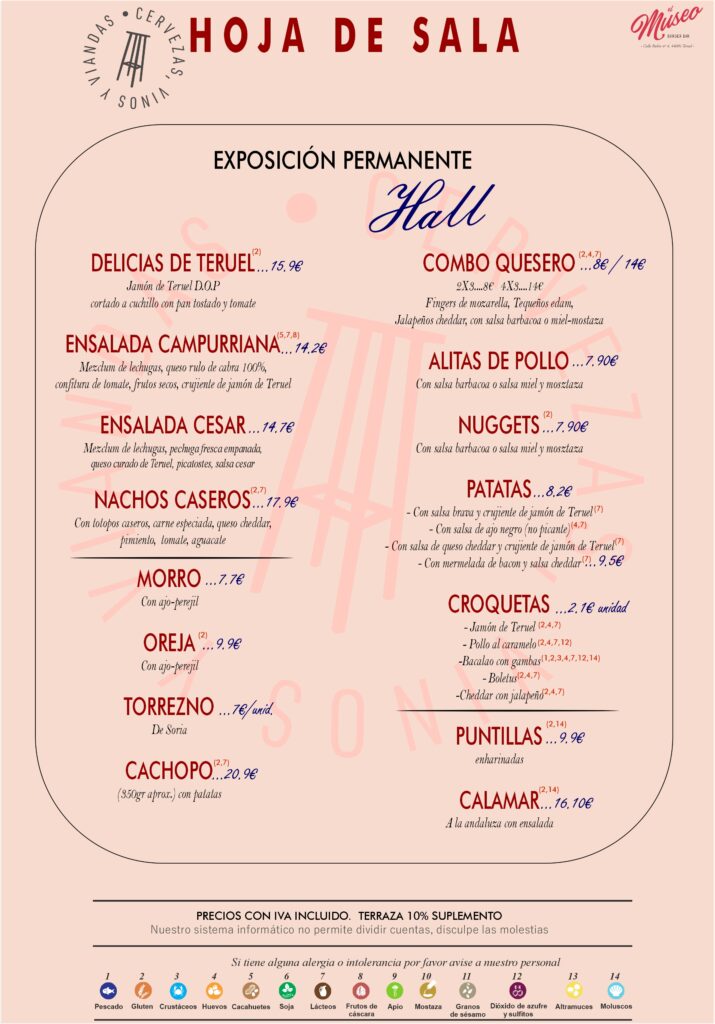 CERVEZAS, VINOS Y VIANDAS •
HOJA DE SALA
el Museo
BURGER BAR
EXPOSICIÓN PERMANENTE
Hall
DELICIAS DE TERUEL(2)...15,9€
Jamón de Teruel D.O.P
cortado a cuchillo con pan tostado y tomate
ENSALADA CAMPURRIANA(5,7,8)...14,2€
Mezclum de lechugas, queso rulo de cabra 100%,
confitura de tomate, frutos secos, crujiente de jamón de Teruel
ENSALADA CESAR...14,7€
Mezclum de lechugas, pechuga fresca empanada,
queso curado de Teruel, picatostes, salsa cesar
NACHOS CASEROS(2,7)...17,9€
Con totopos caseros, carne especiada, queso cheddar,
pimiento, tomate, aguacate
MORRO...7,7€
Con ajo-perejil
OREJA(2)...9,9€
Con ajo-perejil
TORREZNO...7€/unid.
De Soria
CACHOPO(2,7)...20,9€
(350gr aprox.) con patatas
COMBO QUESERO(2,4,7)...8€ / 14€
2X3....8€ 4X3....14€
Fingers de mozarella, Tequeños edam,
Jalapeños cheddar, con salsa barbacoa o miel-mostaza
ALITAS DE POLLO...7,90€
Con salsa barbacoa o salsa miel y mosztaza
NUGGETS(2)...7,90€
Con salsa barbacoa o salsa miel y mosztaza
PATATAS...8,2€
- Con salsa brava y crujiente de jamón de Teruel(7)
- Con salsa de ajo negro (no picante)(4,7)
- Con salsa de queso cheddar y crujiente de jamón de Teruel(7)
- Con mermelada de bacon y salsa cheddar(7)...9,5€
CROQUETAS...2,1€ unidad
- Jamón de Teruel (2,4,7)
- Pollo al caramelo(2,4,7,12)
-Bacalao con gambas(1,2,3,4,7,12,14)
- Boletus(2,4,7)
-Cheddar con jalapeño(2,4,7)
PUNTILLAS(2,14)...9,9€
enharinadas
CALAMAR(2,14)...16,10€
A la andaluza con ensalada
CERVEZAS, VINOS Y VIANDAS •
PRECIOS CON IVA INCLUIDO. TERRAZA 10% SUPLEMENTO
Nuestro sistema informático no permite dividir cuentas, disculpe las molestias
Si tiene alguna alergia o intolerancia por favor avise a nuestro personal
1 2 3 4 5 6 7 8 9 10 11 12 13 14
Pescado Gluten Crustáceos Huevos Cacahuetes Soja Lácteos Frutos de cáscara Apio Mostaza Granos de sésamo Dióxido de azufre y sulfitos Altramuces Moluscos